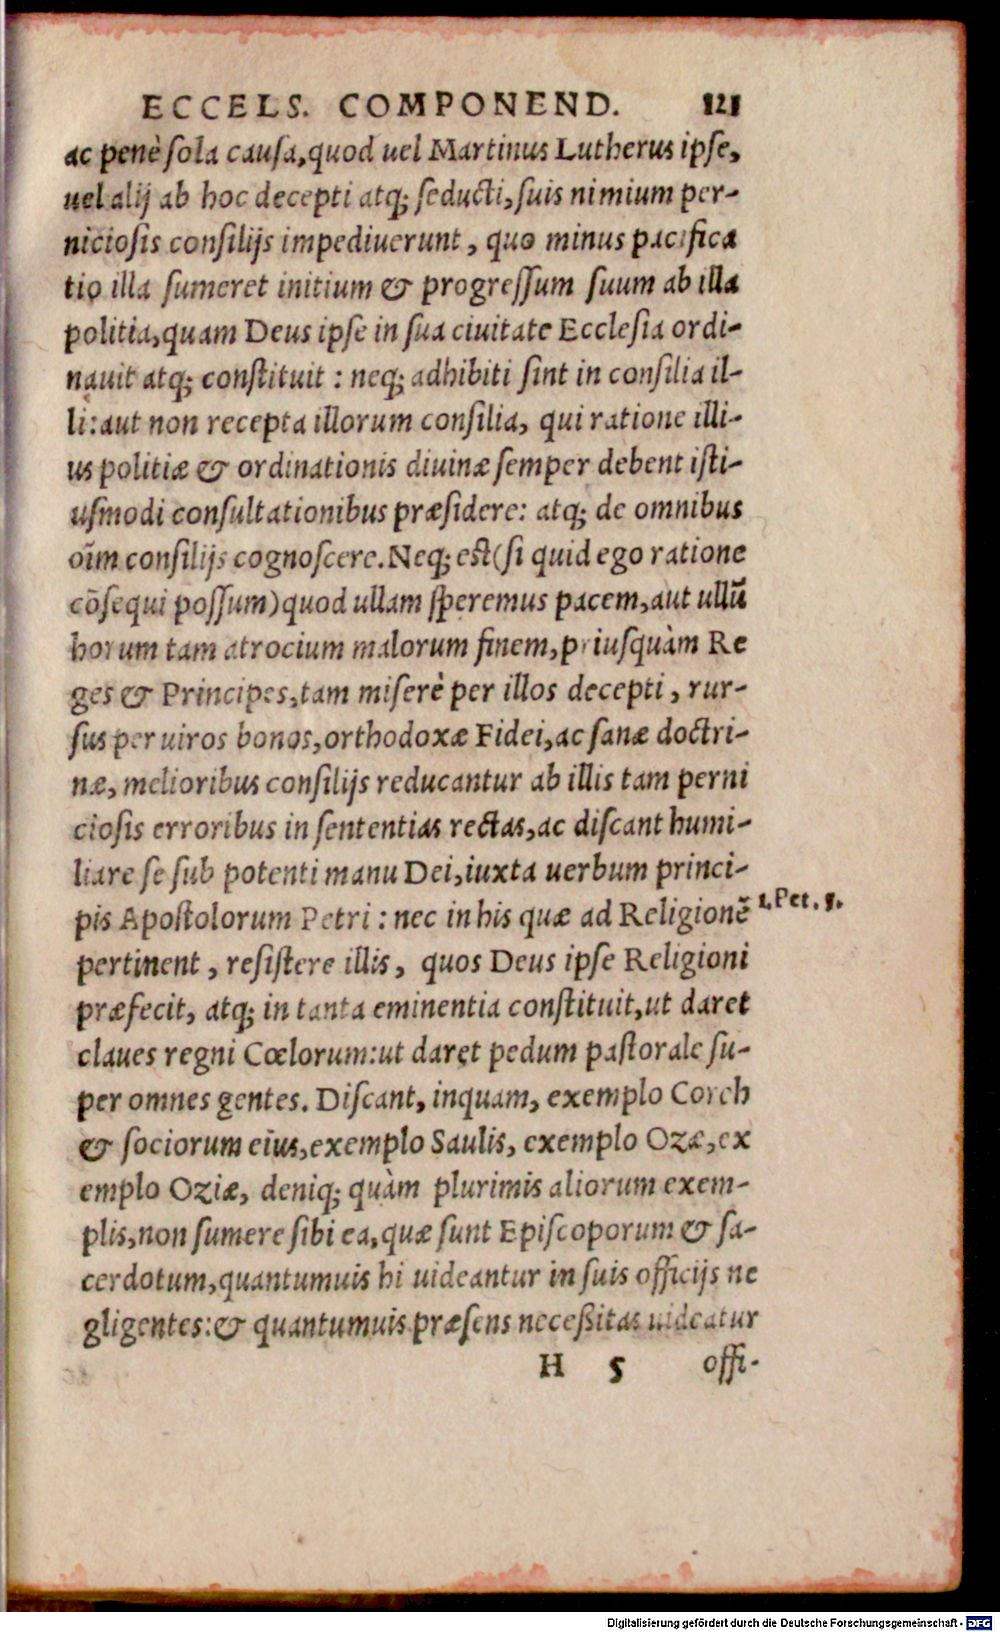 ECCELS. COMPONEND. 121
ac penè ſola cauſa, quod uel Martinus Lutherus ipſe,
uel alij ab hoc decepti atq; ſeducti, ſuis nimium per-
nicioſis conſilijs impediuerunt, quo minus pacifica
tio illa ſumeret initium & progreſſum ſuum ab illa
politia, quam Deus ipſe in ſua ciuitate Eccleſia ordi-
nauit atq; conſtituit : neq; adhibiti ſint in conſilia il-
li: aut non recepta illorum conſilia, qui ratione illi-
us politiæ & ordinationis diuinæ ſemper debent iſti-
uſmodi conſultationibus præſidere: atq; de omnibus
oīm conſilijs cognoſcere. Neq; eſt (ſi quid ego ratione
cōſequi poſſum) quod ullam ſperemus pacem, aut ullū
horum tam atrocium malorum finem, priuſquàm Re
ges & Principes, tam miſerè per illos decepti, rur-
ſus per uiros bonos, orthodoxæ Fidei, ac ſanæ doctri-
næ, melioribus conſilijs reducantur ab illis tam perni
cioſis erroribus in ſententias rectas, ac diſcant humi-
liare ſe ſub potenti manu Dei, iuxta uerbum princi-
pis Apoſtolorum Petri : nec in his quæ ad Religionē
1. Pet. 5.
pertinent, reſiſtere illis, quos Deus ipſe Religioni
præfecit, atq; in tanta eminentia conſtituit, ut daret
claues regni Cœlorum: ut daret pedum paſtorale ſu-
per omnes gentes. Diſcant, inquam, exemplo Coreh
& ſociorum eius, exemplo Saulis, exemplo Ozæ, ex
emplo Oziæ, deniq; quàm plurimis aliorum exem-
plis, non ſumere ſibi ea, quæ ſunt Epiſcoporum & ſa-
cerdotum, quantumuis hi uideantur in ſuis officijs ne
gligentes: & quantumuis præſens neceßitas uideatur
H 5 offi-
Digitalisierung gefördert durch die Deutsche Forschungsgemeinschaft - DFG